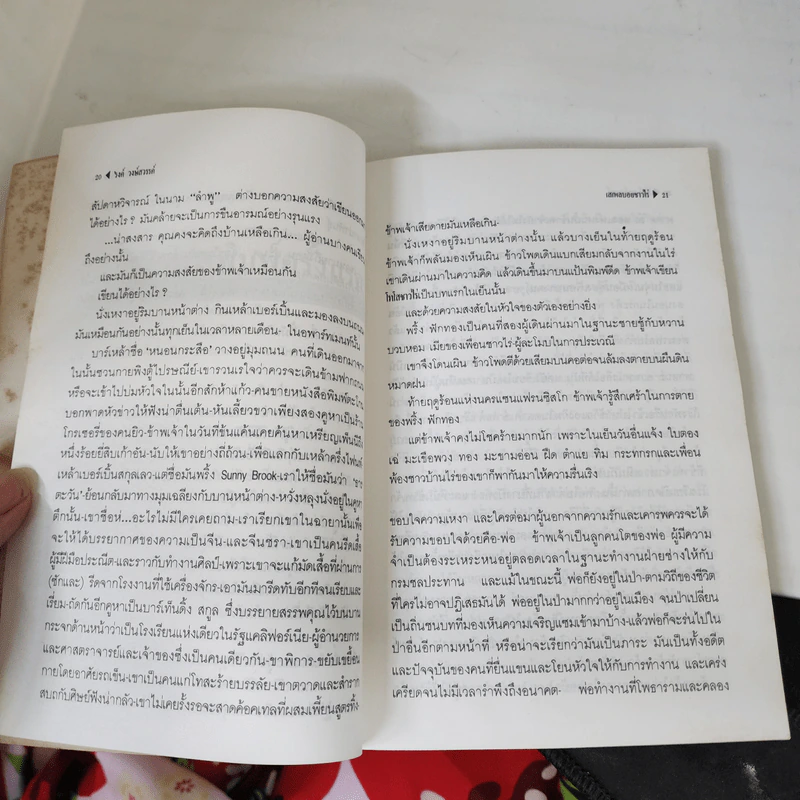 20 ◀ รงค์ วงษ์สวรรค์
สัปดาหวิจารณ์ ในนาม “ลำพู” ต่างบอกความสงสัยว่าเขียนออกมา
ได้อย่างไร ? มันคล้ายจะเป็นการขืนอารมณ์อย่างรุนแรง
...น่าสงสาร คุณคงจะคิดถึงบ้านเหลือเกิน... ผู้อ่านบางคนเขียน
ถึงอย่างนั้น
และมันก็เป็นความสงสัยของข้าพเจ้าเหมือนกัน
เขียนได้อย่างไร ?
นั่งเหงาอยู่ริมบานหน้าต่าง กินเหล้าเบอร์เบิ้นและมองลงบนถนน
มันเหมือนกันอย่างนั้นทุกเย็นในเวลาหลายเดือน- ในอพาร์ทเมนท์นั้น
บาร์เหล้าชื่อ ‘หนอนกระสือ’ วางอยู่มุมถนน คนที่เดินออกมาจาก
ในนั้นชวนกายพิงตู้ไปรษณีย์-เขารวนเรใจว่าควรจะเดินข้ามฟากถนน
หรือจะเข้าไปบ่มหัวใจในนั้นอีกสักห้าแก้ว-คนขายหนังสือพิมพ์ตะโกน
บอกพาดหัวข่าวให้ฟังน่าตื่นเต้น-หันเลี้ยวขวาเพียงสองคูหาเป็นร้าน
โกรเซอรี่ของคนยิว-ข้าพเจ้าในวันที่ขันแค้นเคยค้นหาเหรียญเพ็นนีถึง
หนึ่งร้อยยี่สิบเก้าอัน-นับให้เขาอย่างถี่ถ้วน-เพื่อแลกกับเหล้าครึ่งไพน์
เหล้าเบอร์เบิ้นสกุลเลว-แต่ชื่อมันพริ้ง Sunny Brook-เราให้ชื่อมันว่า
ตะวัน’-ย้อนกลับมาทางมุมเฉลียงกับบานหน้าต่าง-หวั่งหลุงนั่งอยู่ในคูหา
ตึกนั้น-เขาชื่อห่...อะไรไม่มีใครเคยถาม-เราเรียกเขาในฉายานั้นเพื่อ
จะให้ได้บรรยากาศของความเป็นจีน-และจีนชรา-เขาเป็นคนรีดเสื้อ
ผู้มีฝีมือประณีต-และราวกับทำงานศิลป์-เพราะเขาจะแก้มัดเสื้อที่ผ่านการ
(ซักและ) รีดจากโรงงานที่ใช้เครื่องจักร-เอามันมารีดทับอีกทีจนเรียบและ
เรียบ-ถัดกันอีกคูหาเป็นบาร์เท็นดิ้ง สกูล ซึ่งบรรยายสรรพคุณไว้บนบาน
กระจกด้านหน้าว่าเป็นโรงเรียนแห่งเดียวในรัฐแคลิฟอร์เนีย-ผู้อำนวยการ
และศาสตราจารย์และเจ้าของซึ่งเป็นคนเดียวกัน-ขาพิการ-ขยับเขยื้อน
กายโดยอาศัยรถเข็น-เขาเป็นคนแก่โทสะร้ายบรรลัย-เขาตวาดและสำราก
สบถกับศิษย์ฟังน่ากลัว-เขาไม่เคยรั้งรอจะสาดค้อคเทลที่ผสมเพี้ยนสูตรทิ้ง-
เสเพลบอยชาวไร่ ▶ 21
ข้าพเจ้าเสียดายมันเหลือเกิน-
นั่งเหงาอยู่ริมบานหน้าต่างนั้น แล้วบางเย็นในท้ายฤดูร้อน
ข้าพเจ้าก็พลันมองเห็นเผิน ข้าวโพดเดินแบกเสียมกลับจากงานในไร่
เขาเดินผ่านมาในความคิด แล้วเดินขึ้นมาบนแป้นพิมพ์ดีด ข้าพเจ้าเขียน
เป็นบทแรกในเย็นนั้น
และด้วยความสงสัยในหัวใจของตัวเองอย่างยิ่ง
พริ้ง ฟักทองเป็นคนที่สองผู้เดินผ่านมาในฐานะชายชู้กับหวาน
บวบหอม เมียของเพื่อนชาวไร่-ผู้ละโมบในการประเวณี
เขาจึงโดนเผิน ข้าวโพดตีด้วยเสียมบนคอต่อจนล้มลงตายบนผืนดิน
หมาดฝน
ท้ายฤดูร้อนแห่งนครแซนแฟรนซิสโก ข้าพเจ้ารู้สึกเศร้าในการตาย
ของพริ้ง ฟักทอง
แต่ข้าพเจ้าคงไม่โชคร้ายมากนัก เพราะในเย็นวันอื่นแจ้ง ใบตอง
เฉ่ มะเขือพวง ทอง มะขามอ่อน ฝืด ตำแย ทิม กระทกรกและเพื่อน
พ้องชาวบ้านไร่ของเขาก็พากันมาให้ความรื่นเริง
ขอบใจความเหงา และใครต่อมาผู้นอกจากความรักและเคารพควรจะได้
รับความขอบใจด้วยคือ-พ่อ ข้าพเจ้าเป็นลูกคนโตของพ่อ ผู้มีความ
จำเป็นต้องระเหระหนอยู่ตลอดเวลาในฐานะทำงานฝ่ายช่างให้กับ
กรมชลประทาน และแม้ในขณะนี้ พ่อก็ยังอยู่ในป่า-ตามวิถีของชีวิต
ที่ใครไม่อาจปฏิเสธมันได้ พ่ออยู่ในป่ามากกว่าอยู่ในเมือง จนป่าเปลี่ยน
เป็นถิ่นชนบทที่มองเห็นความเจริญแซมเข้ามาบ้าง-แล้วพ่อก็จะร่นไปใน
ป่าอื่นอีกตามหน้าที่ หรือน่าจะเรียกว่ามันเป็นภาระ มันเป็นทั้งอดีต
และปัจจุบันของคนที่ยืนแขนและโยนหัวใจให้กับการทำงาน และเคร่ง
เครียดจนไม่มีเวลารำพึงถึงอนาคต- พ่อทำงานที่โพธารามและคลอง